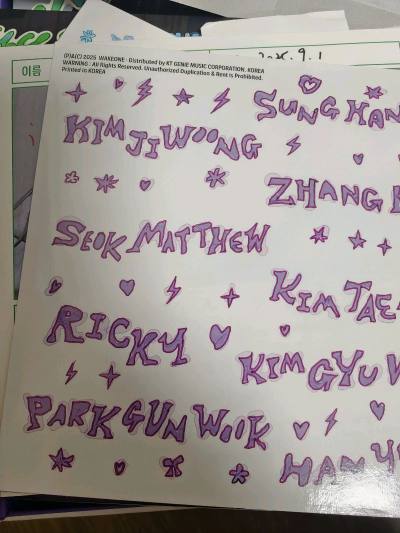 (P)&(C) 2025 WAKEONE · Distributed by KT GENIE MUSIC CORPORATION, KOREA
WARNING : All Rights Reserved. Unauthorized Duplication & Rent is Prohibited.
Printed in KOREA
이름
SUNG HAN
KIM JIWOONG
ZHANG
SEOK MATTHEW
KIM TAE
RICKY
KIM GYUV
PARK GUN WOOK
HAN YU